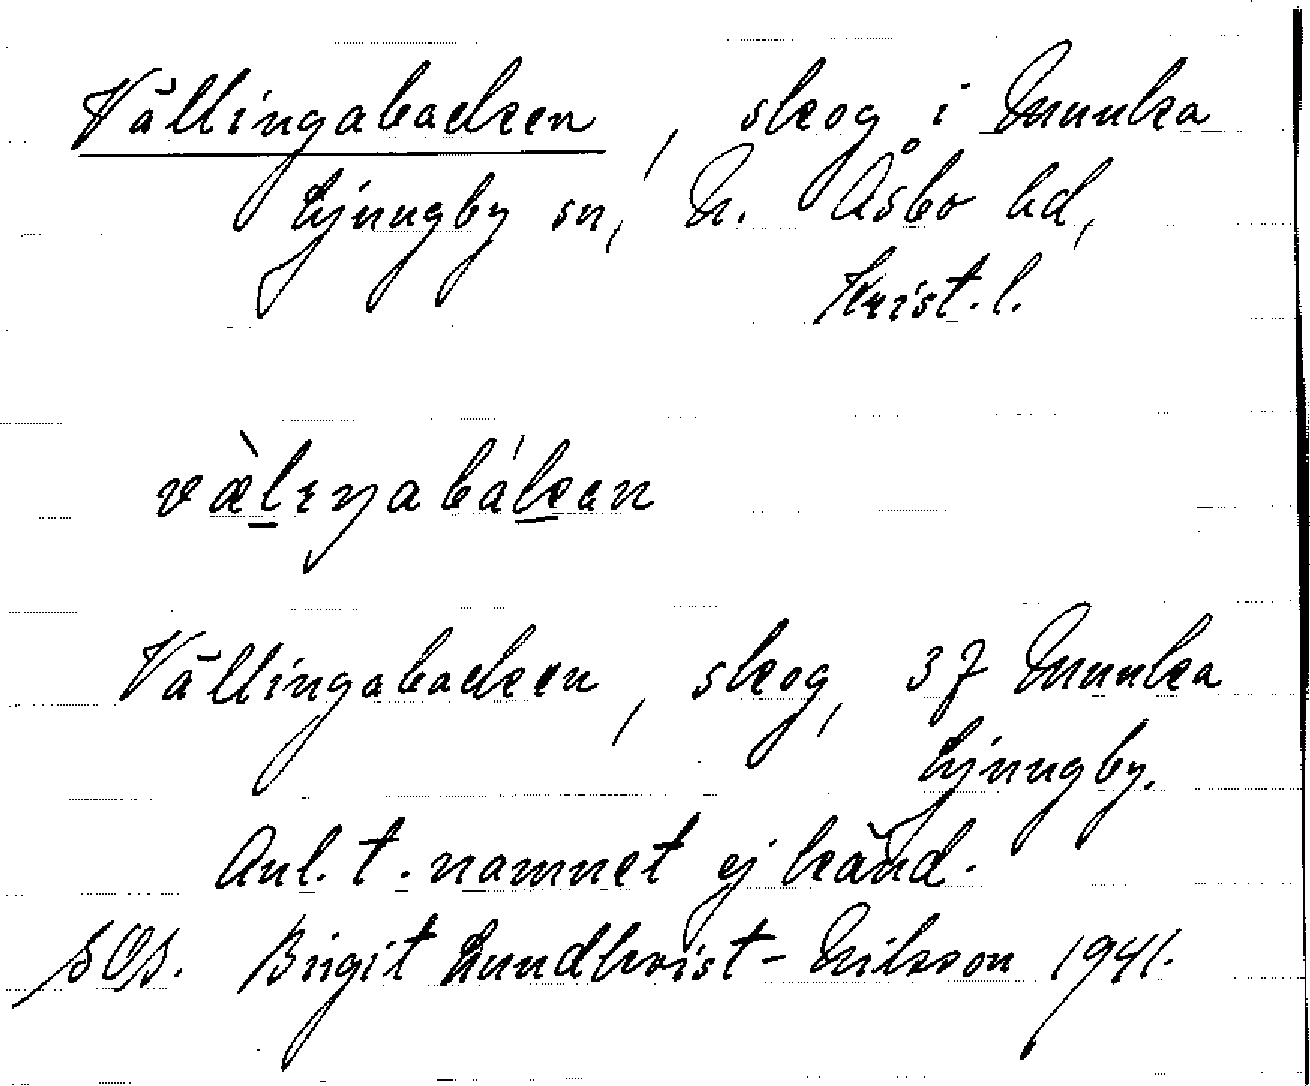 Vällingabacken, skog i Munka
Ljungby sn, N. Åsbo hd,
Krist. l.
Vällingabacken, skog, 37 Munka
Ljungby.
Anl. t. namnet ej känd.
Birgit Lundkvist-Nilsson 1941.